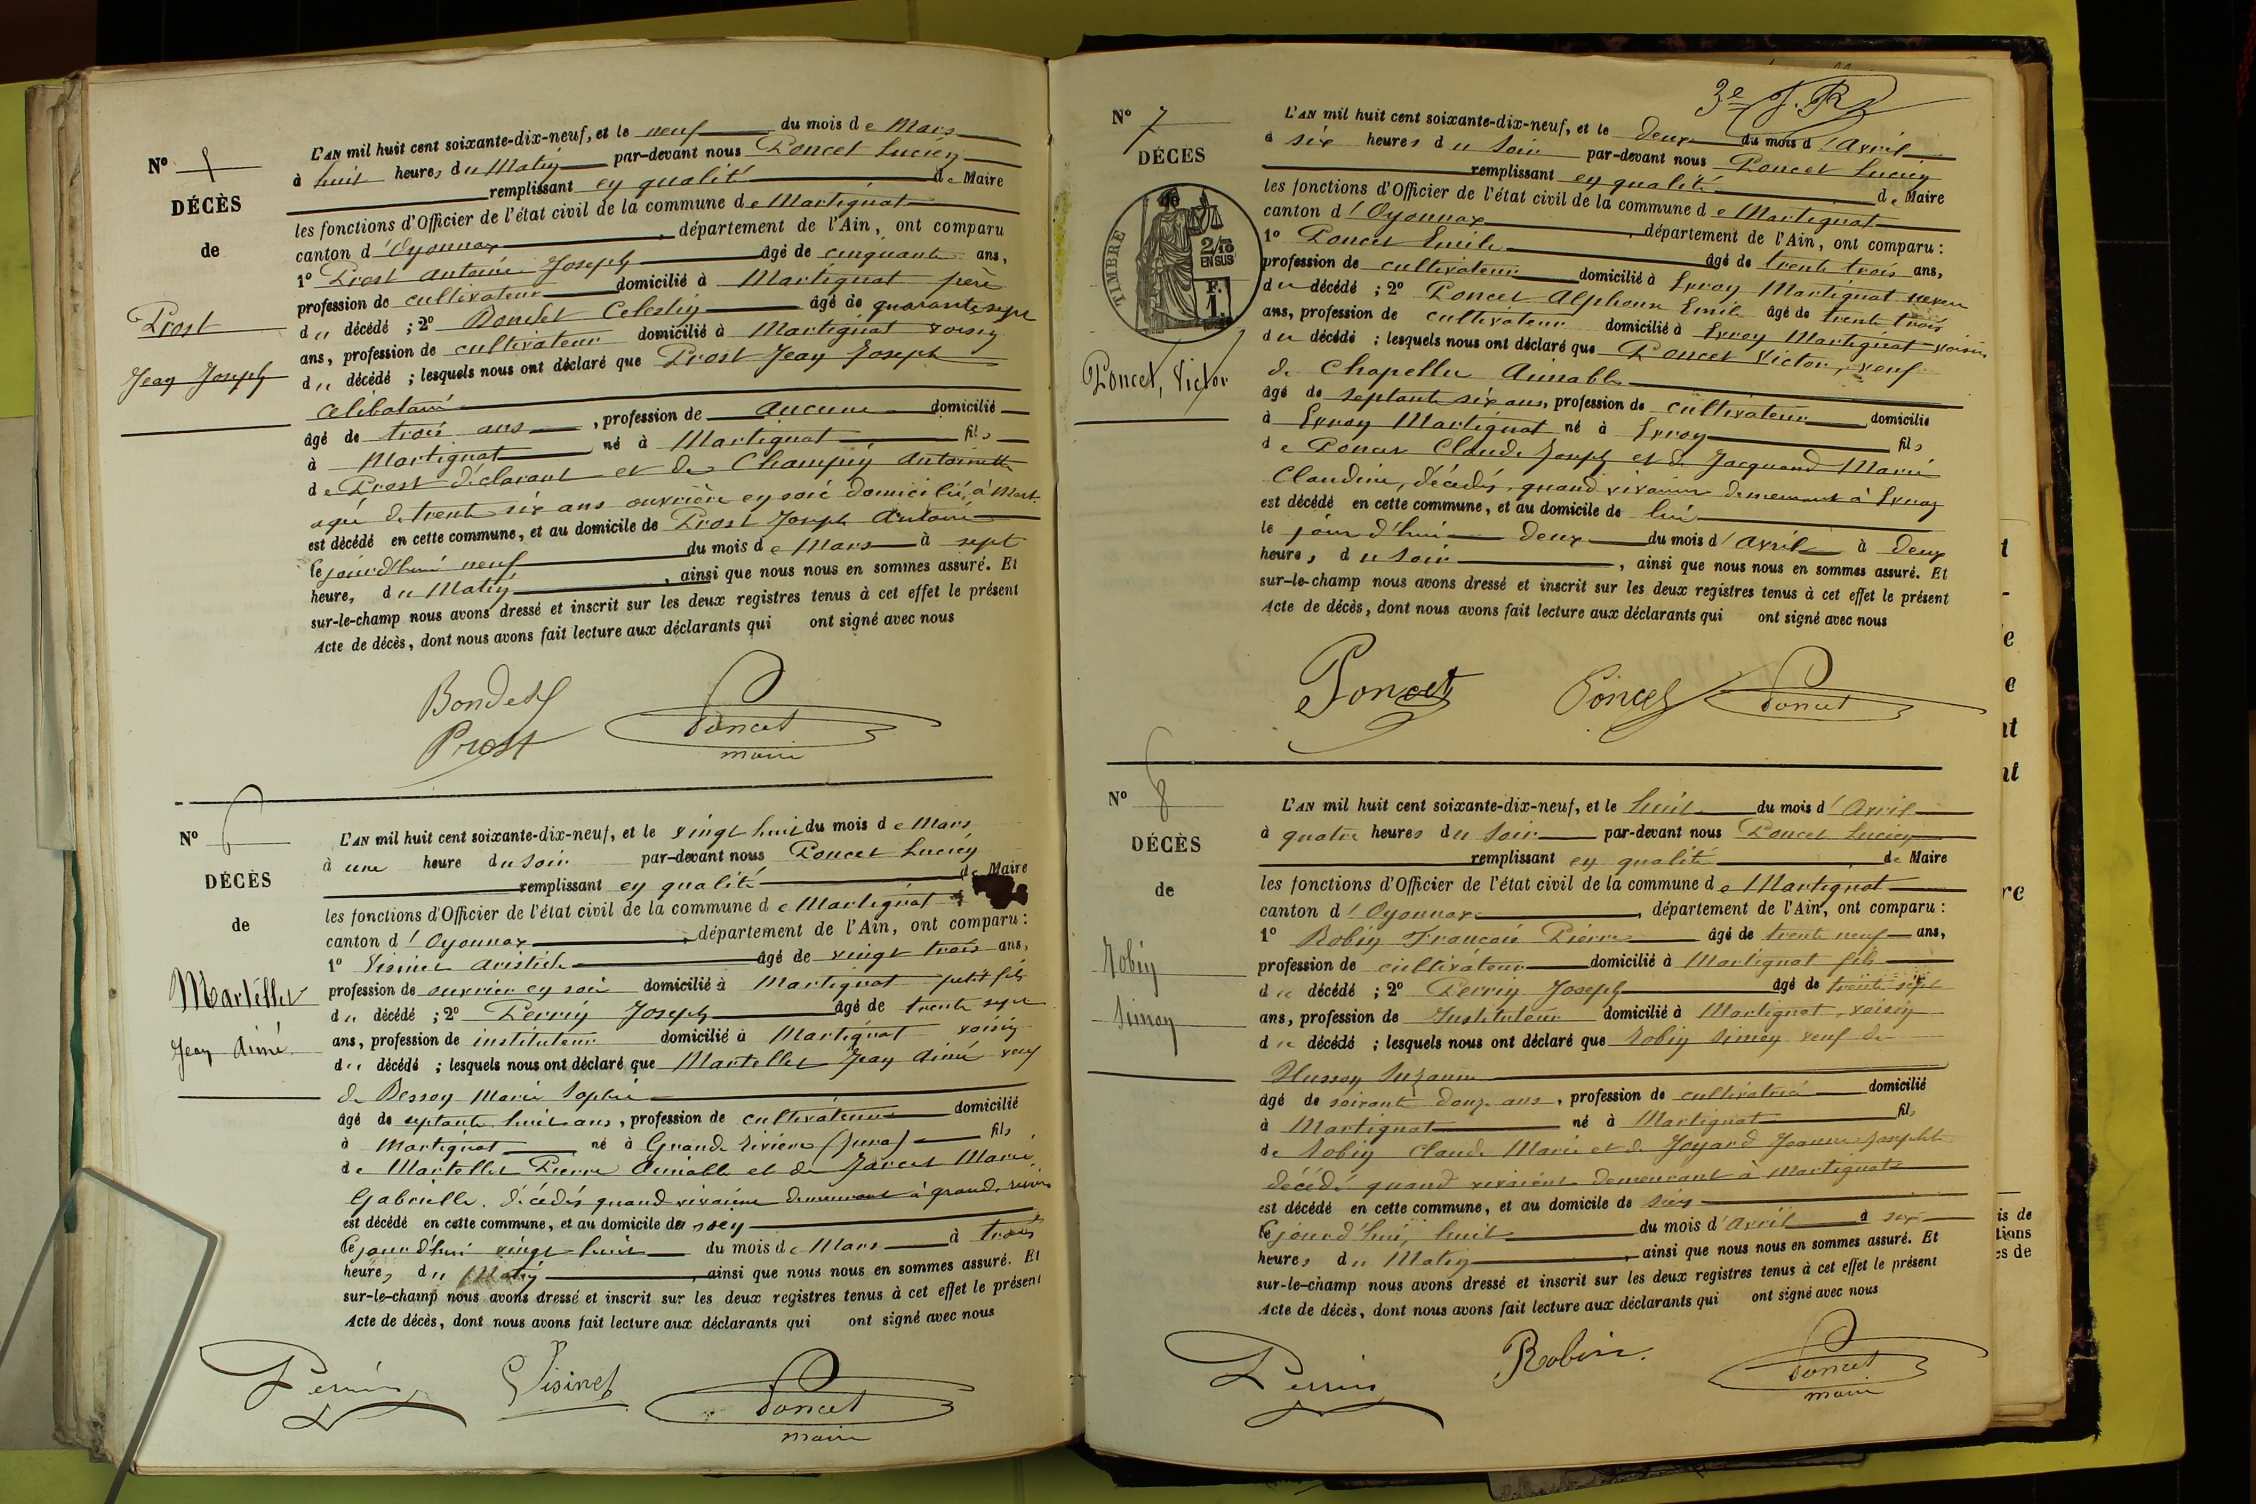 Nº 5
DÉCÈS
de
Prost
Jean Joseph
L'AN mil huit cent soixante-dix-neuf, et le neuf du mois de Mars
à huit heures du Matin par-devant nous Poncet Lucien
remplissant en qualité de Maire
les fonctions d'Officier de l'état civil de la commune de Martignat
canton d'Oyonnax, département de l'Ain, ont comparu
1º Prost Antoine Joseph âgé de cinquante ans,
profession de cultivateur domicilié à Martignat père
du décédé ; 2º Bondet Celestin âgé de quarante sept
ans, profession de cultivateur domicilié à Martignat voisin
du décédé ; lesquels nous ont déclaré que Prost Jean Joseph
célibataire
âgé de trois ans, profession de aucune domicilié
à Martignat né à Martignat fils
de Prost déclarant et de Champin Antoinette
agée de trente six ans ouvrière en soie domiciliée à Mart.
est décédé en cette commune, et au domicile de Prost Joseph Antoine
le jourd'hui neuf du mois de Mars à sept
heures du Matin, ainsi que nous nous en sommes assuré. Et
sur-le-champ nous avons dressé et inscrit sur les deux registres tenus à cet effet le présent
Acte de décès, dont nous avons fait lecture aux déclarants qui ont signé avec nous
Bondet
Prost
Poncet
maire
Nº 6
DÉCÈS
de
Martellet
Jean Aimé
L'AN mil huit cent soixante-dix-neuf, et le vingt huit du mois de Mars
à une heure du soir par-devant nous Poncet Lucien
remplissant en qualité de Maire
les fonctions d'Officier de l'état civil de la commune de Martignat
canton d'Oyonnax, département de l'Ain, ont comparu :
1º Visinet Aristide âgé de vingt trois ans,
profession de ouvrier en soie domicilié à Martignat petit fils
du décédé ; 2º Perrin Joseph âgé de trente sept
ans, profession de instituteur domicilié à Martignat voisin
du décédé ; lesquels nous ont déclaré que Martellet Jean Aimé veuf
de Besson Marie Sophie
âgé de septante huit ans, profession de cultivateur domicilié
à Martignat né à Grande rivière (Jura) fils
de Martellet Pierre Aimable et de Jarcet Marie
Gabrielle, décédés quand vivaient demeurant à grande rivière
est décédé en cette commune, et au domicile de sien
le jourd'hui vingt-huit du mois de Mars à trois
heures du Matin, ainsi que nous nous en sommes assuré. Et
sur-le-champ nous avons dressé et inscrit sur les deux registres tenus à cet effet le présent
Acte de décès, dont nous avons fait lecture aux déclarants qui ont signé avec nous
Perrin
Visinet
Poncet
maire
3e J. R
Nº 7
DÉCÈS
TIMBRE
2/10
EN SUS
F.
1.
Poncet, Victor
L'AN mil huit cent soixante-dix-neuf, et le deux du mois d'Avril
à six heures du soir par-devant nous Poncet Lucien
remplissant en qualité de Maire
les fonctions d'Officier de l'état civil de la commune de Martignat
canton d'Oyonnax, département de l'Ain, ont comparu :
1º Poncet Emile âgé de trente trois ans,
profession de cultivateur domicilié à Evron Martignat neveu
du décédé ; 2º Poncet Alphonse Emile âgé de trente trois
ans, profession de cultivateur domicilié à Evron Martignat voisin
du décédé ; lesquels nous ont déclaré que Poncet Victor, veuf
de Chapellu Aimable
âgé de septante six ans, profession de cultivateur domicilié
à Evron Martignat né à Evron fils
de Poncet Claude Joseph et de Jacquand Marie
Claudine, décédés, quand vivaient demeurant à Evron
est décédé en cette commune, et au domicile de lui
le jour d'hui deux du mois d'Avril à Deux
heures du soir, ainsi que nous nous en sommes assuré. Et
sur-le-champ nous avons dressé et inscrit sur les deux registres tenus à cet effet le présent
Acte de décès, dont nous avons fait lecture aux déclarants qui ont signé avec nous
Poncet
Poncet
Poncet
Nº 8
DÉCÈS
de
Robin
Simon
L'AN mil huit cent soixante-dix-neuf, et le huit du mois d'Avril
à quatre heures du soir par-devant nous Poncet Lucien
remplissant en qualité de Maire
les fonctions d'Officier de l'état civil de la commune de Martignat
canton d'Oyonnax, département de l'Ain, ont comparu :
1º Robin François Pierre âgé de trente neuf ans,
profession de cultivateur domicilié à Martignat fils
du décédé ; 2º Perrin Joseph âgé de trente sept
ans, profession de Instituteur domicilié à Martignat, voisin
du décédé ; lesquels nous ont déclaré que Robin Simon veuf de
Husson Suzanne
âgé de soixante douze ans, profession de cultivateur domicilié
à Martignat né à Martignat fils
de Robin Claude Marie et de Joyard Jeanne Josephte
décédé quand vivaient demeurant à Martignat
est décédé en cette commune, et au domicile de sien
le jourd'hui huit du mois d'Avril à six
heures du Matin, ainsi que nous nous en sommes assuré. Et
sur-le-champ nous avons dressé et inscrit sur les deux registres tenus à cet effet le présent
Acte de décès, dont nous avons fait lecture aux déclarants qui ont signé avec nous
Perrin
Robin
Poncet
maire